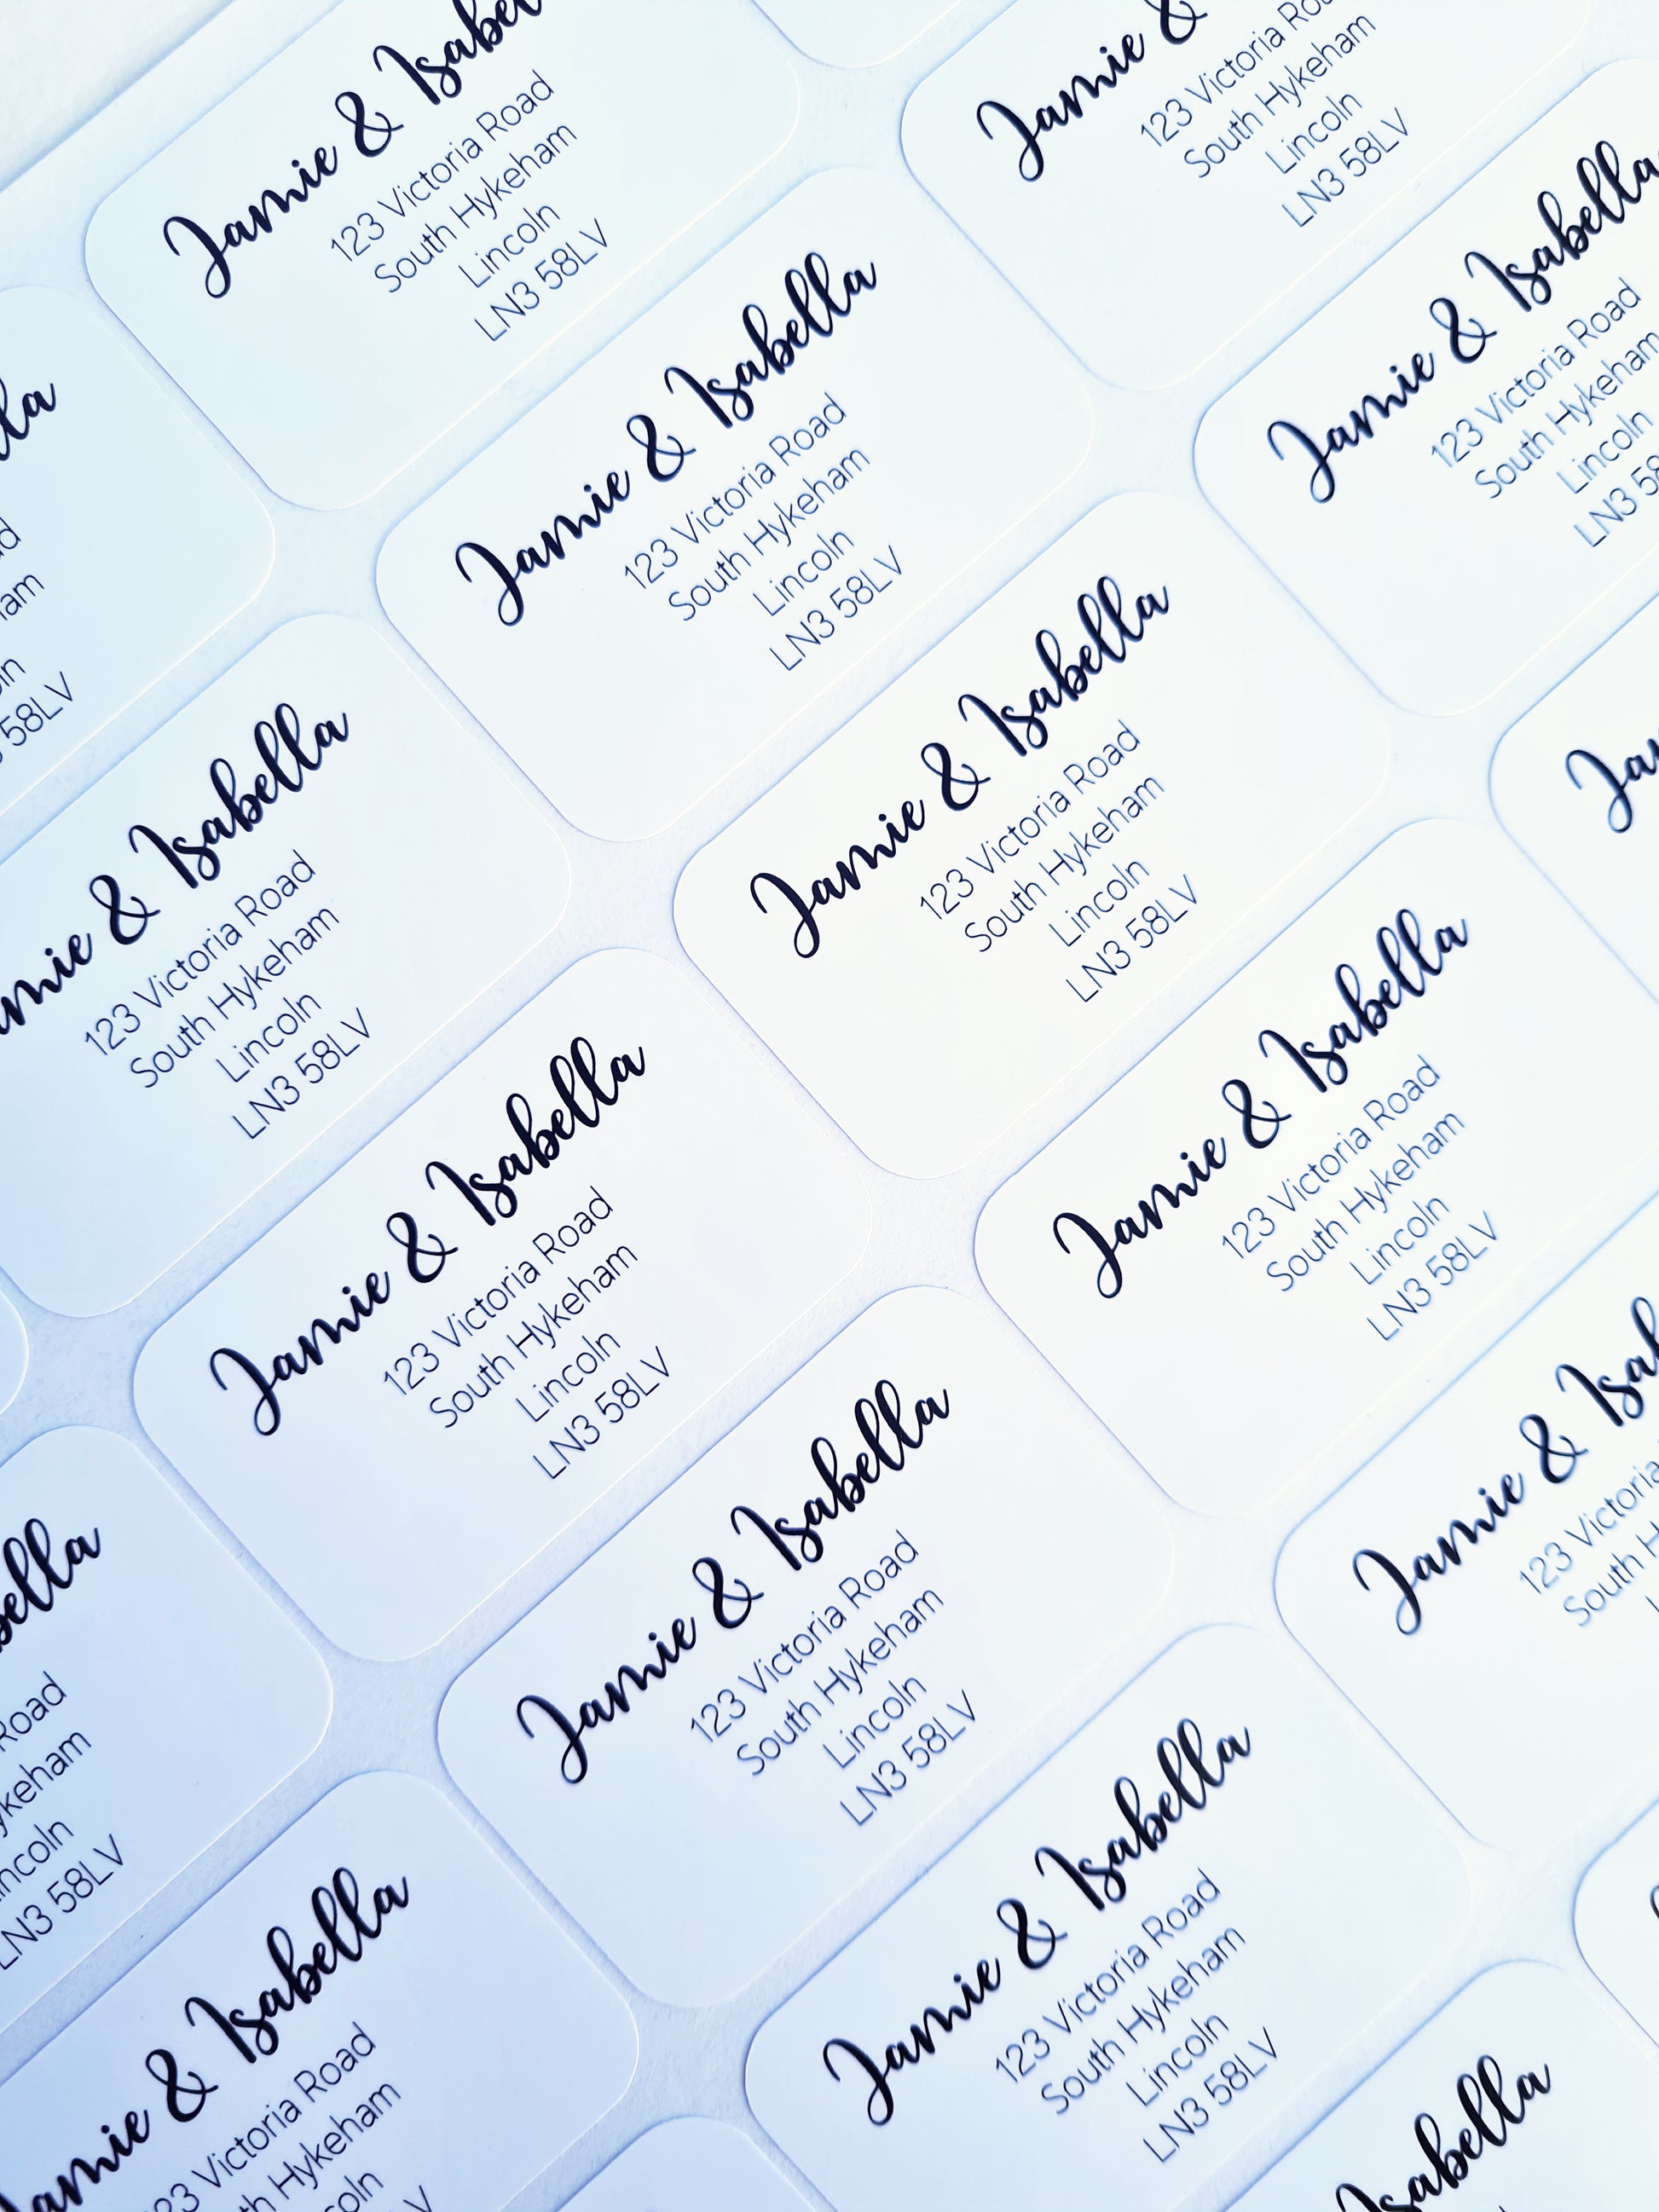 Jamie & Isabe
123 Victoria Road
South Hykeham
Lincoln
LN3 58LV
Jamie &
123 Victoria Ro
South Hykeham
Lincoln
LN3 58LV
lla
d
am
ln
58LV
Jamie & Isabella
123 Victoria Road
South Hykeham
Lincoln
LN3 58LV
Jamie & Isabella
123 Victoria Road
South Hykeham
Lincoln
LN3 58
mie & Isabella
123 Victoria Road
South Hykeham
Lincoln
LN3 58LV
Jamie & Isabella
123 Victoria Road
South Hykeham
Lincoln
LN3 58LV
Ja
Jamie & Isabella
123 Victoria Road
South Hykeham
Lincoln
LN3 58LV
Jamie & Isabella
123 Victoria Road
South Hykeham
Lincoln
LN3 58LV
bella
Road
ykeham
ncoln
LN3 58LV
Jamie & Isabella
123 Victoria Road
South Hykeham
Lincoln
LN3 58LV
Jamie & Isab
123 Victoria
South H
L
amie & Isabella
23 Victoria Road
th Hykeham
coln
V
Jamie & Isabella
123 Victoria Road
South Hykeham
Lincoln
LN3 58LV
sabella